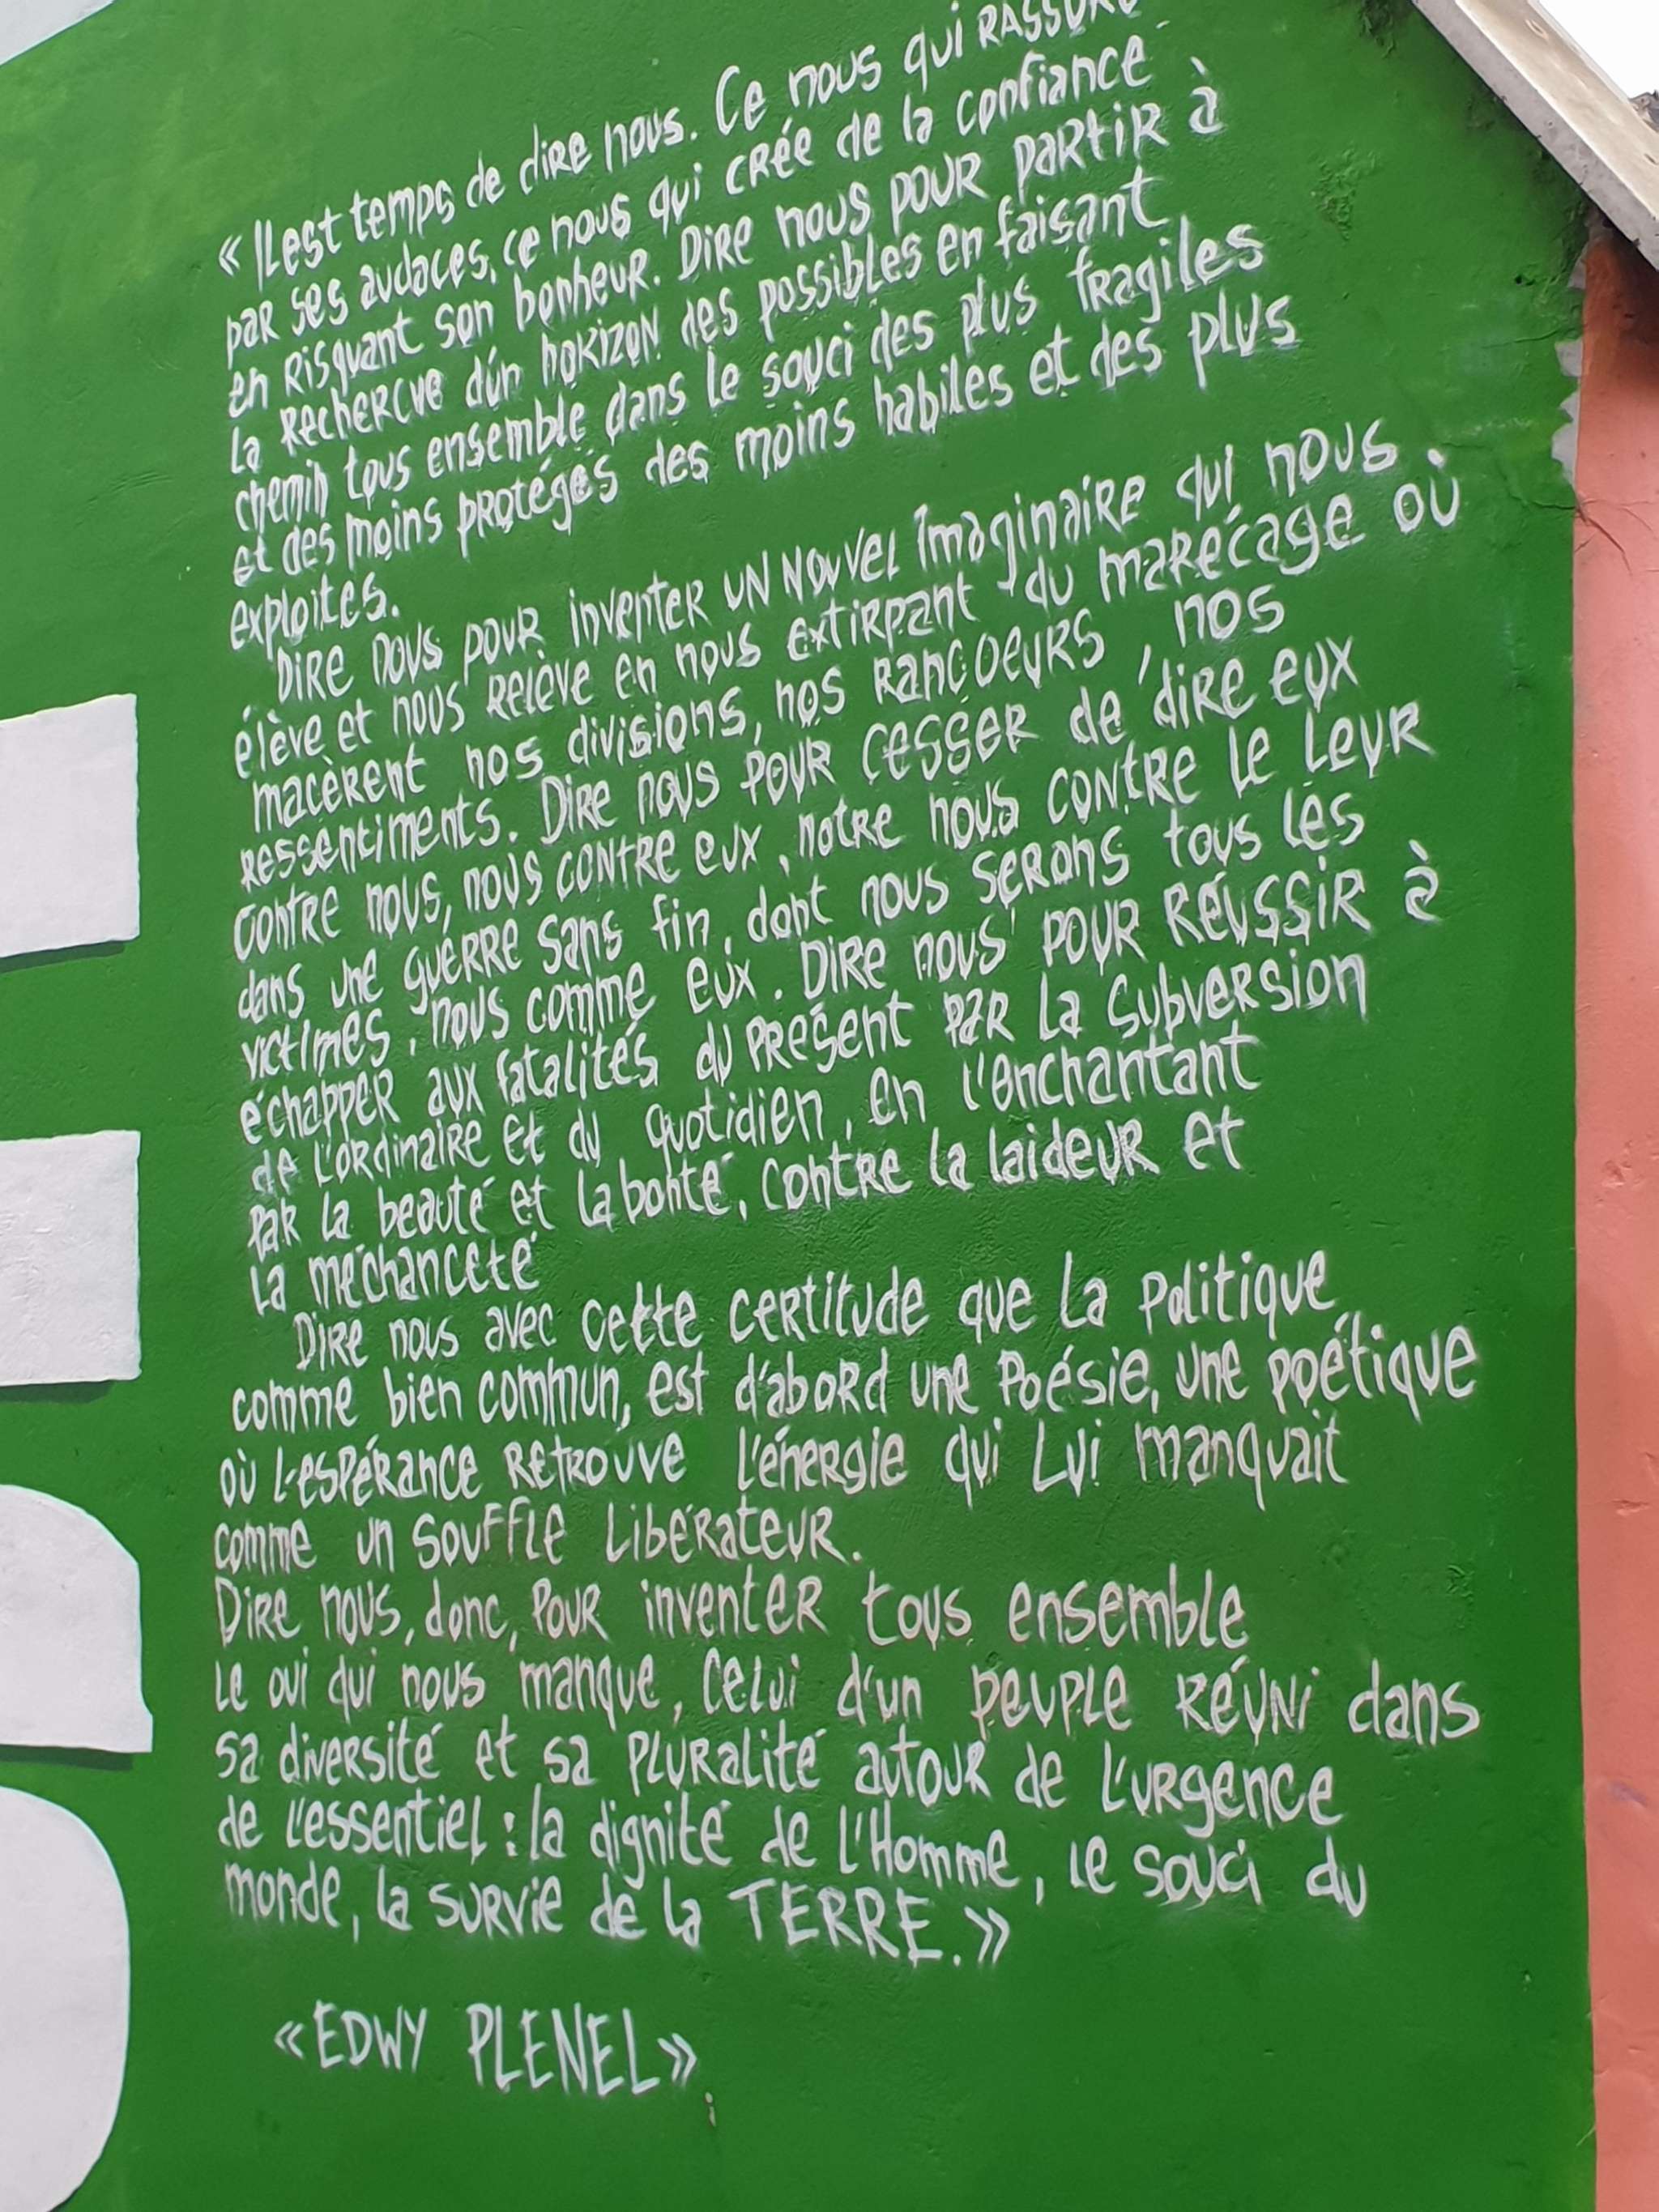 « Il est temps de dire nous. Ce nous qui RASSURE
par ses audaces, ce nous qui crée de la confiance
en risquant son bonheur. Dire nous pour partir à
la recherche d'ún horizon des possibles en faisant
chemin tous ensemble dans le souci des plus fragiles
et des moins protégés des moins habiles et des plus
exploités.
Dire nous pour inventer un nouvel imaginaire qui nous
élève et nous relève en nous extirpant du marécage où
macèrent nos divisions, nos rançoeurs, nos
ressentiments. Dire nous pour cesser de dire eux
contre nous, nous contre eux, notre nous contre le leur
dans une guerre sans fin, dont nous serons tous les
victimes, nous comme eux. Dire nous pour réussir à
échapper aux fatalités du présent par la subversion
de l'ordinaire et du quotidien, en l'enchantant
par la beauté et la bonté, contre la laideur et
la méchanceté
Dire nous avec cette certitude que la politique,
comme bien commun, est d'abord une poésie, une poétique
où l'espérance retrouve l'énergie qui lui manquait
comme un souffle libérateur.
Dire nous, donc, pour inventer tous ensemble
le oui qui nous manque, celui d'un peuple réuni dans
sa diversité et sa pluralité autour de l'urgence
de l'essentiel : la dignité de l'Homme, le souci du
monde, la survie de la TERRE. »
« EDWY PLENEL »